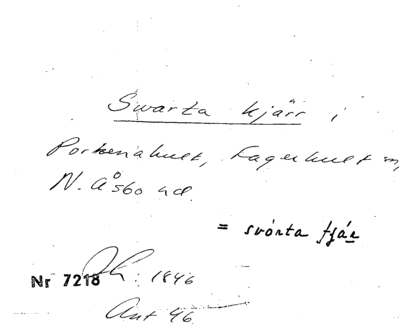 Swarta kjärr i
Porkenahult, Fagerhult sn,
N. Åsbo hd.
= svórta tjár
Nr 7218 : 1846
Ant 46